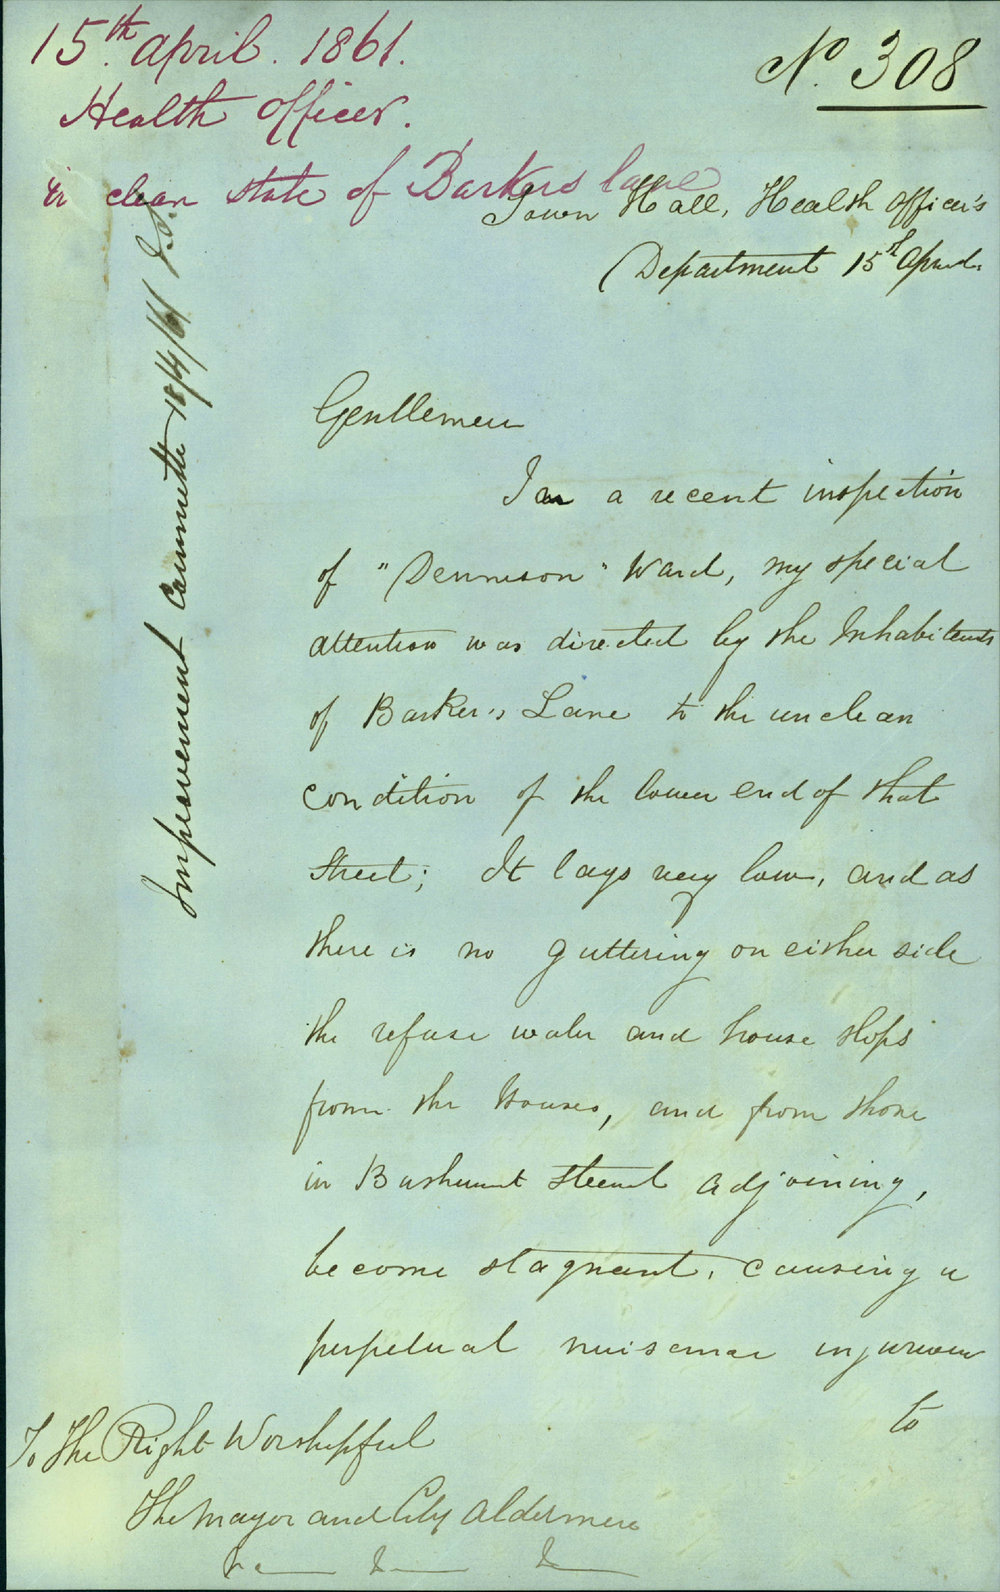 15th. April. 1861.
Health Officer.
Un clean state of Barkers lane
No. 308
Town Hall, Health Officer's
Department 15th April.
Improvement Committee 18/4/61
Gentlemen
In a recent inspection
of "Dennison" Ward, my special
attention was directed by the Inhabitants
of Barker's Lane to the unclean
condition of the lower end of that
Street; It lays very low, and as
there is no guttering on either side
the refuse water and house slops
from the Houses, and from those
in Street adjoining,
become stagnant, causing a
perpetual nuisance injurious
to
To The Right Worshipful
The Mayor and City Aldermen